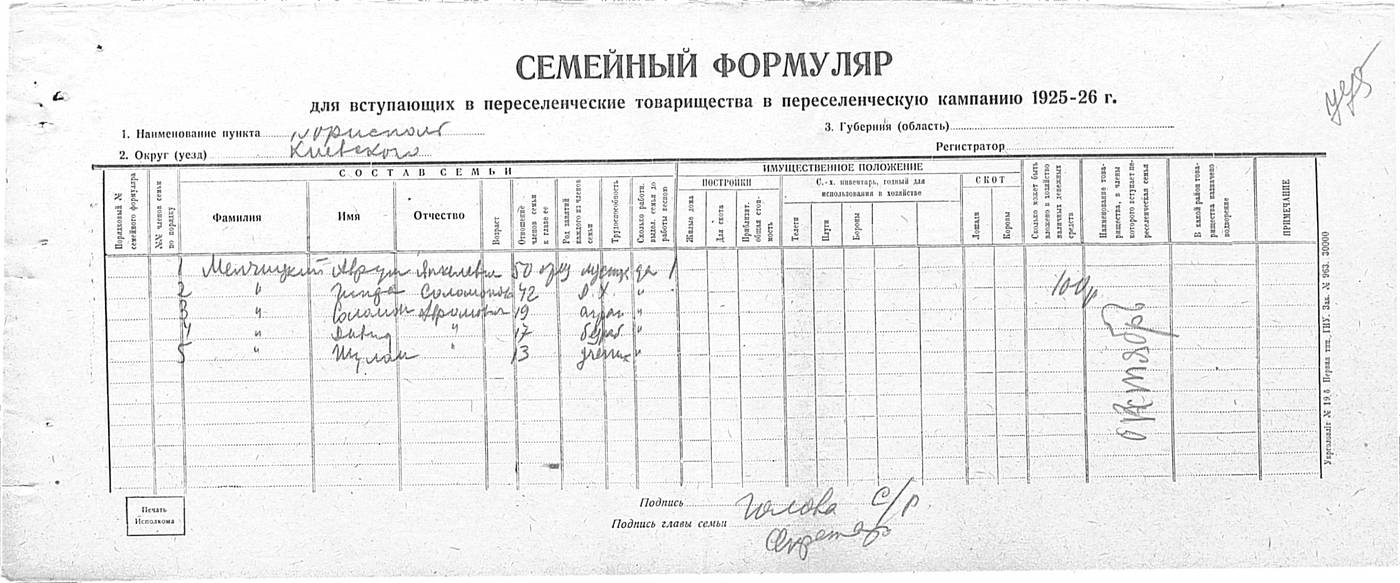 СЕМЕЙНЫЙ ФОРМУЛЯР
для вступающих в переселенческие товарищества в переселенческую кампанию 1925-26 г.
1. Наименование пункта
3. Губерния (область)
2. Округ (уезд) Киевского
Регистратор
СОСТАВ СЕМЬИ
ИМУЩЕСТВЕННОЕ ПОЛОЖЕНИЕ
ПОСТРОЙКИ
С.-х. инвентарь, годный для использования в хозяйстве
СКОТ
Порядковый № семейного формуляра
№№ членов семьи по порядку
Фамилия
Имя
Отчество
Возраст
Отношение членов семьи к главе ее
Род занятий каждого из членов семьи
Трудоспособность
Сколько работн. выдел. семья до работы весною
Жилые дома
Для скота
Приблизит. общая стоимость
Телеги
Плуги
Бороны
Лошади
Коровы
Сколько может быть вложено в хозяйство наличных денежных средств
Наименование товарищества, в члены которого вступает переселенческая семья
В какой район товарищества назначено водворение
ПРИМЕЧАНИЕ
1 Аврум 50 да 1
2 " Соломонов 42 "
3 " Соломон Аврамович 19 "
4 " Давид " 17 "
5 " Шулам " 13 ученик "
100р
Октябрь
Укрголовліт № 19,6. Первая тип. ГИУ. Зак. № 963. 30000
Печать Исполкома
Подпись Голова С/р.
Подпись главы семьи Секретарь